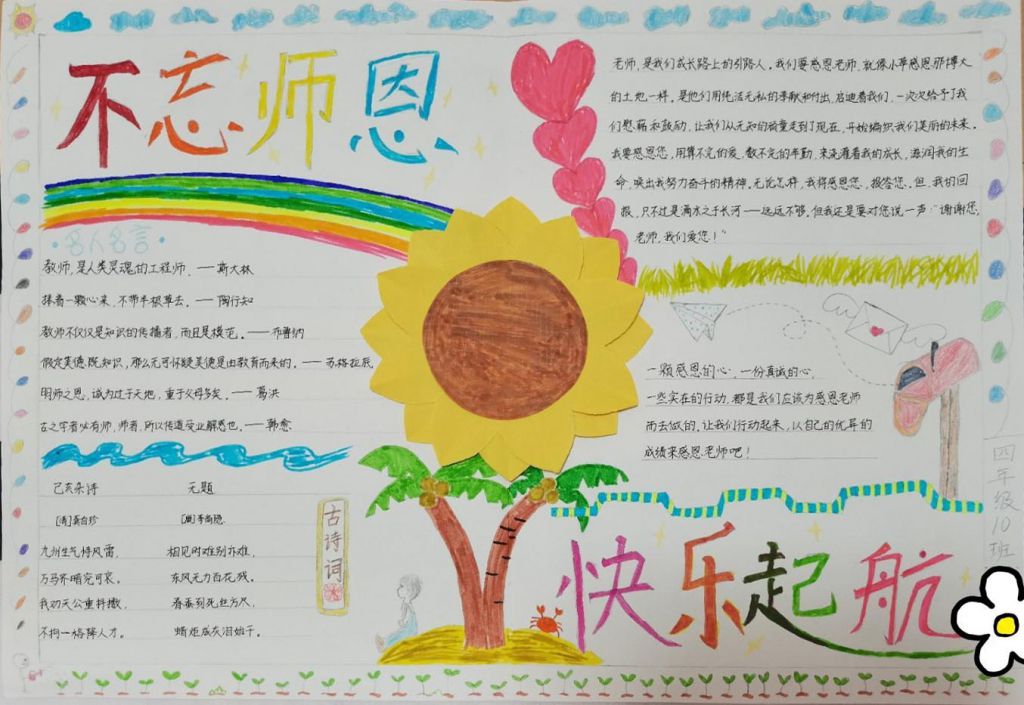 不忘师恩
老师，是我们成长路上的引路人。我们要感恩老师，就像小草感恩那博大
的土地一样。是他们用纯洁无私的奉献和付出，启迪着我们，一次次给予了我
们慰藉和鼓励，让我们从无知的孩童走到了现在，开始编织我们美丽的未来。
我要感恩您，用算不完的爱，数不完的辛勤，来浇灌着我的成长，滋润我的生
命，唤出我努力奋斗的精神。无论怎样，我将感恩您，报答您。但，我们的回
报，只不过是滴水之于长河——远远不够。但我还是要对您说一声：“谢谢您，
老师，我们爱您！”
·名人名言·
教师，是人类灵魂的工程师。——斯大林
捧着一颗心来，不带半根草去。——陶行知
教师不仅仅是知识的传播者，而且是模范。——布鲁纳
假定美德既知识，那么无可怀疑美德是由教育而来的。——苏格拉底
明师之恩，诚为过于天地，重于父母多矣。——葛洪
古之学者必有师，师者，所以传道受业解惑也。——韩愈
一颗感恩的心，一份真诚的心，
一些实在的行动，都是我们应该为感恩老师
而去做的，让我们行动起来，以自己的优异的
成绩来感恩老师吧！
己亥杂诗
[清]龚自珍
九州生气恃风雷，
万马齐喑究可哀。
我劝天公重抖擞，
不拘一格降人才。
无题
[唐]李商隐
相见时难别亦难，
东风无力百花残。
春蚕到死丝方尽，
蜡炬成灰泪始干。
古诗词
四年级10班
快乐起航